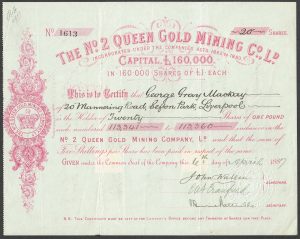 No. 1613
20 SHARES
THE No. 2 QUEEN GOLD MINING CO. LD.
INCORPORATED UNDER THE COMPANIES ACTS 1862 TO 1880
CAPITAL, £160,000.
IN 160,000 SHARES OF £1 EACH
This is to Certify that George Gray Mackay
20 Mannering Road, Sefton Park, Liverpool
is the Holder of Twenty Shares of ONE POUND
each numbered 113341 to 113360 inclusive in the
No 2 QUEEN GOLD MINING COMPANY, LD and that the sum of
Shillings per Share has been paid in respect of the same
GIVEN under the Common Seal of the Company this 6th April 1887
John
N.B. THIS CERTIFICATE MUST BE LEFT AT THE COMPANY'S OFFICE BEFORE ANY TRANSFER OF SHARES CAN TAKE PLACE.